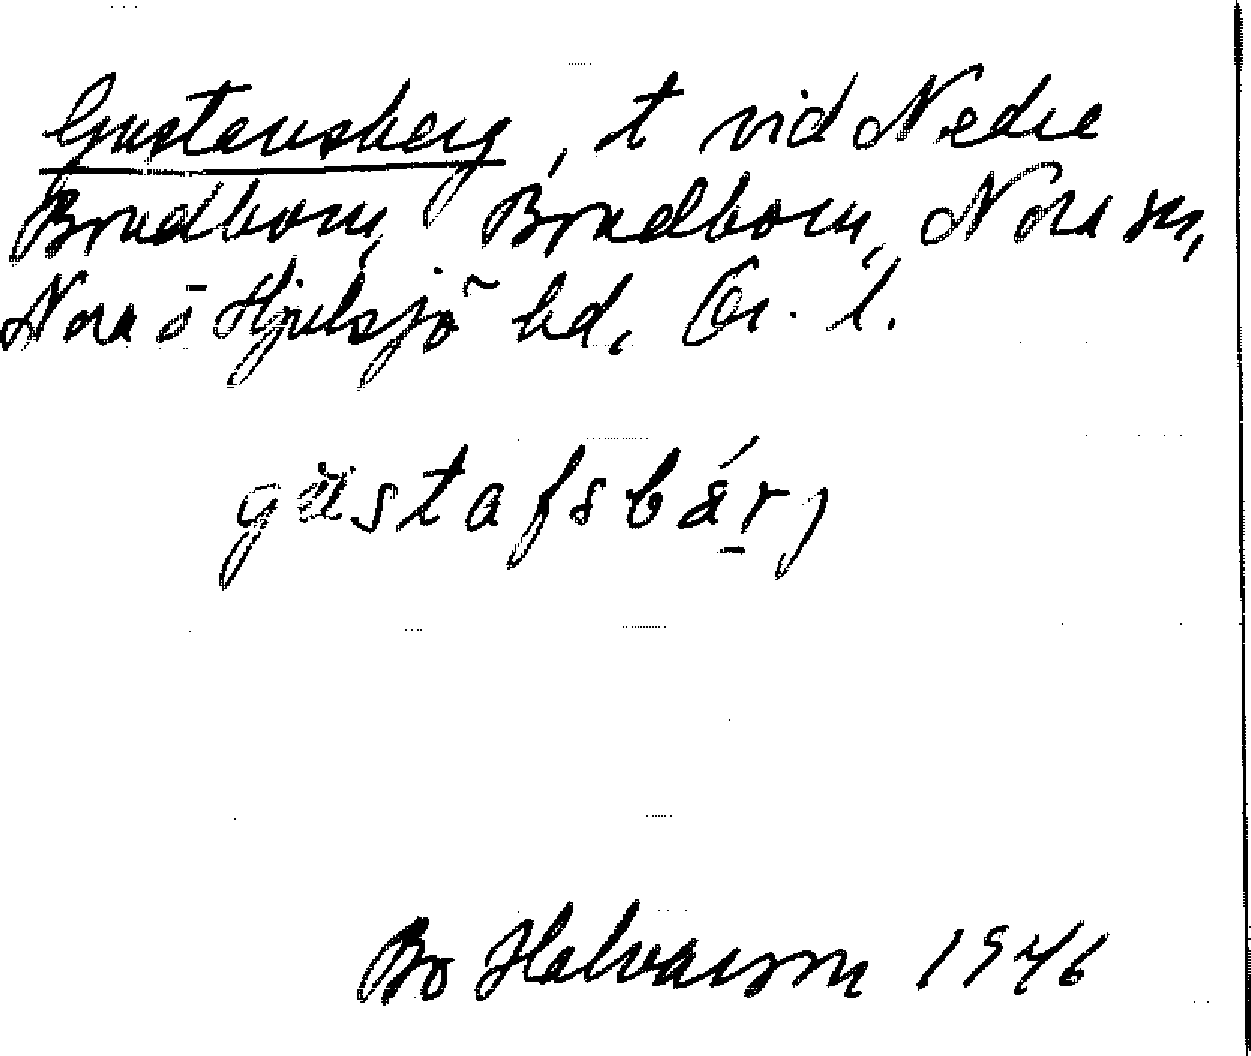 Gustavsberg, t vid Nedre
Bredborn, Bredborn, Nora sn,
Nora o Hjulsjö hd, Ör. l.
gustafsbárj
Bo Halvarson 1946